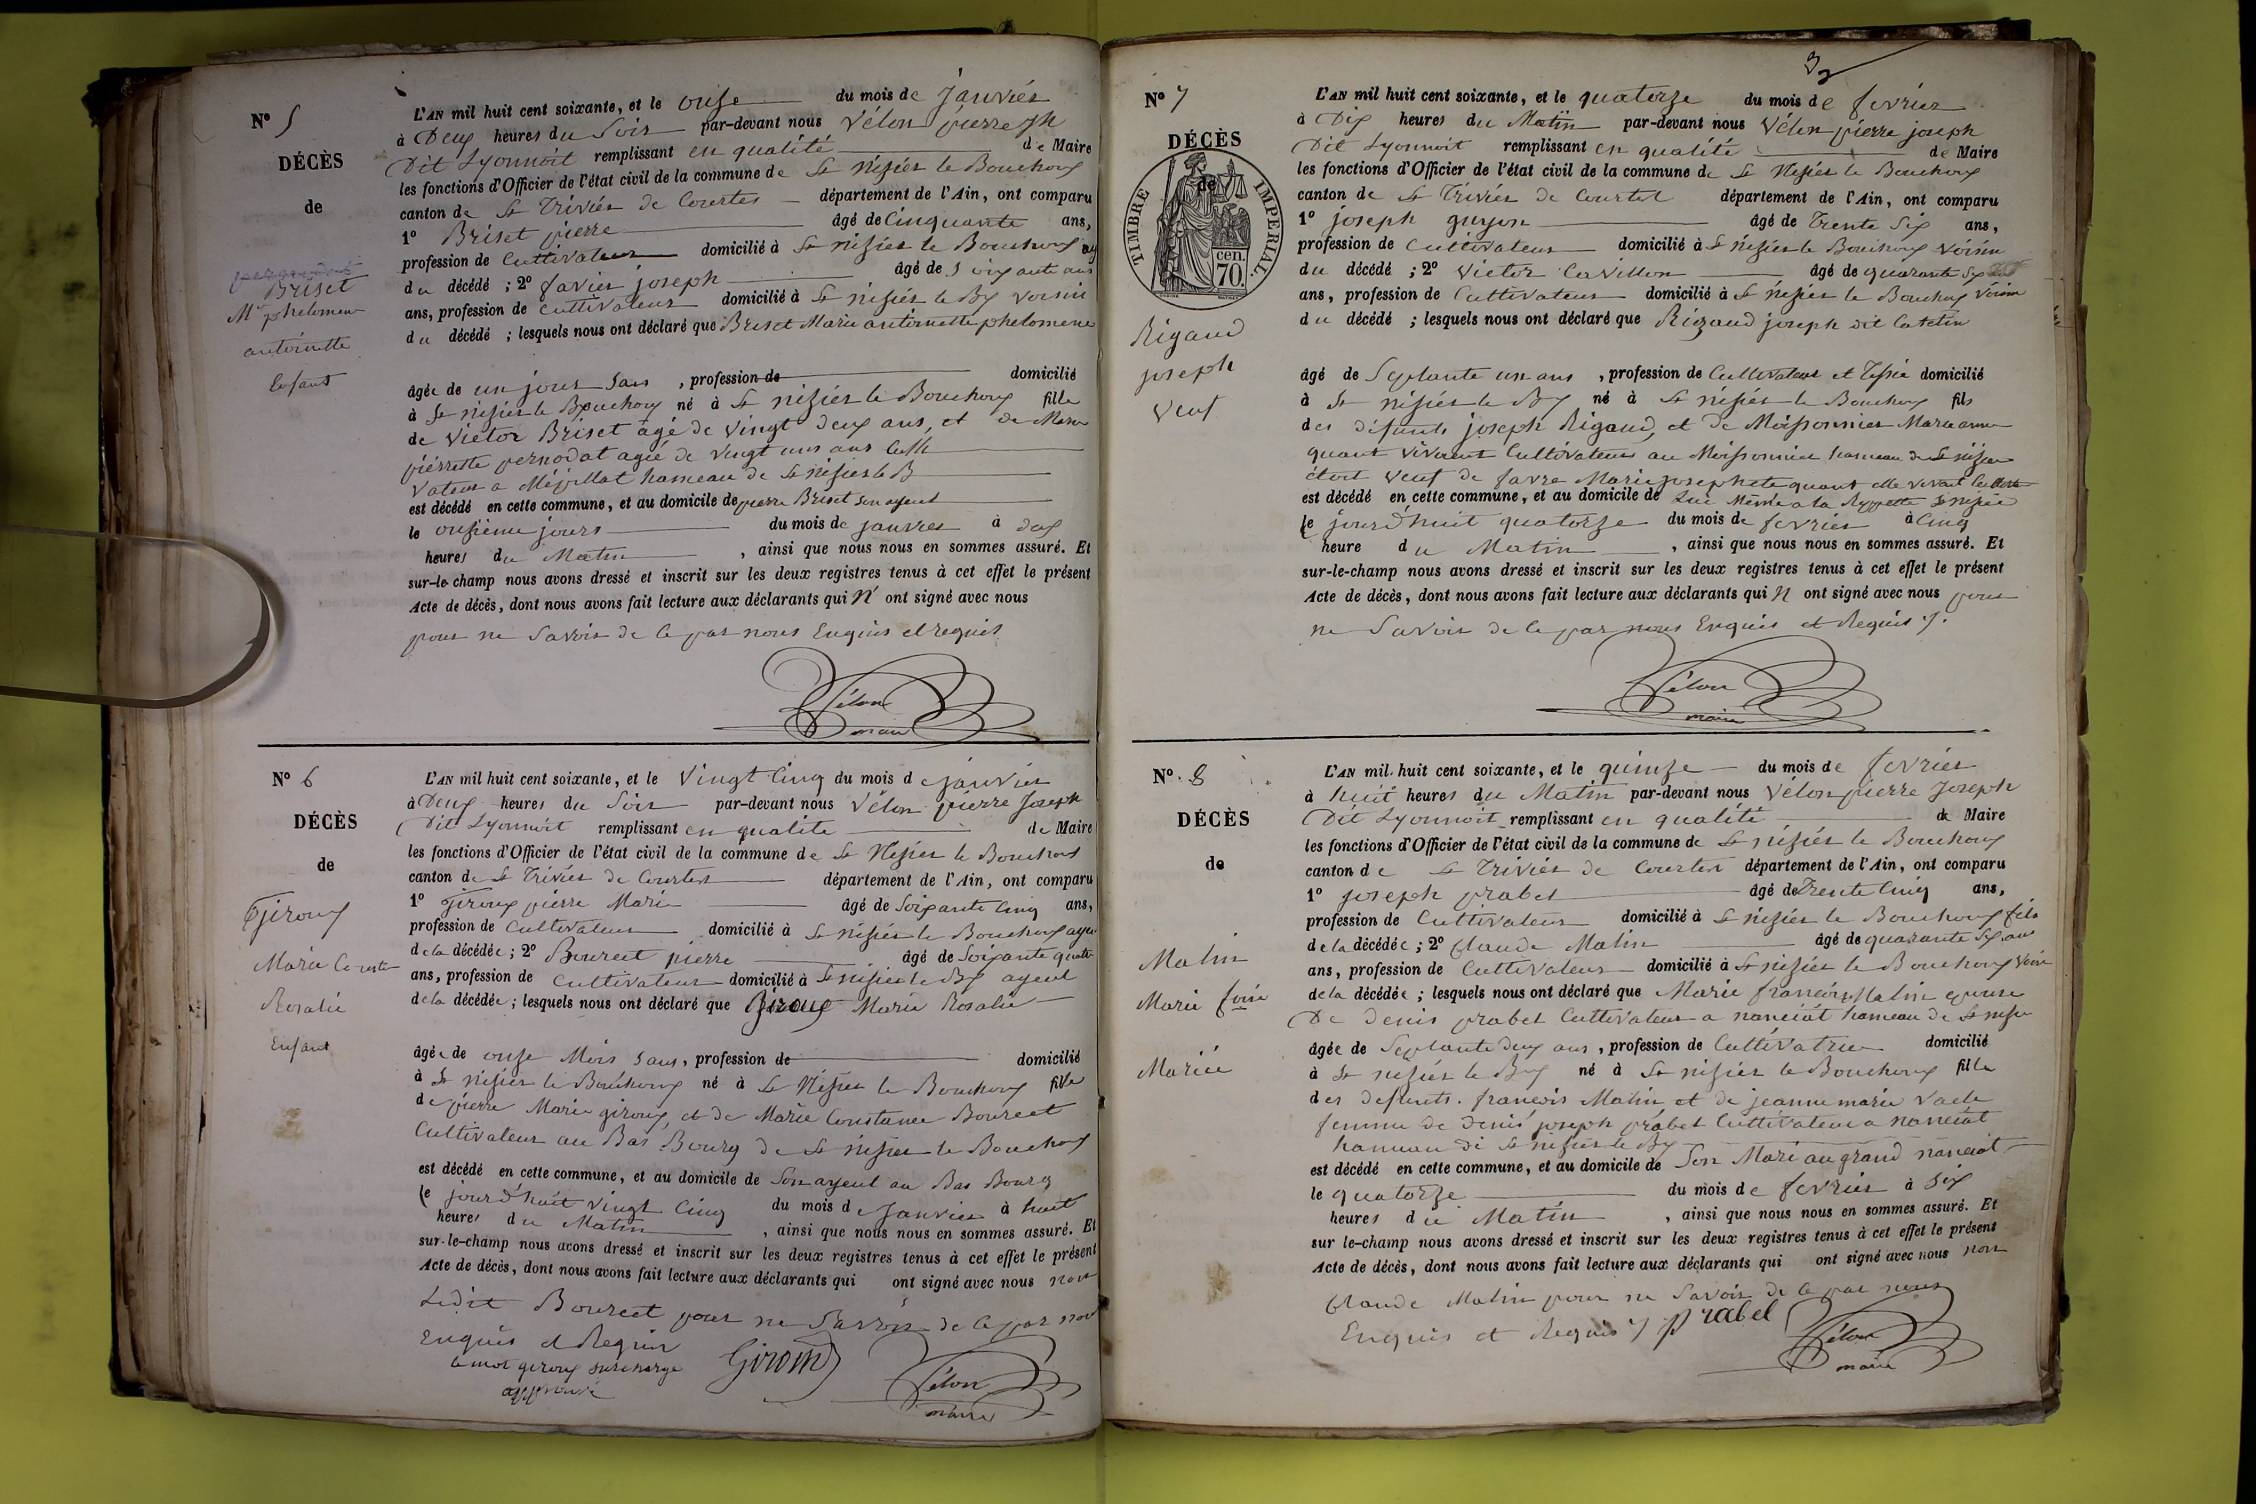 N° 5
DÉCÈS
de
Briset
Mie phelomene
antoinette
Enfant
L'AN mil huit cent soixante, et le onze du mois de janvier
à Deux heures du Soir par-devant nous Vélon pierre jh
Dit Lyonnoit remplissant en qualité de Maire
les fonctions d'Officier de l'état civil de la commune de St Nisier le Bouchoux
canton de St Trivier de Courtes département de l'Ain, ont comparu
1° Briset pierre âgé de Cinquante ans,
profession de Cultivateur domicilié à St nisier le Bouchoux
du décédé ; 2° favier joseph âgé de Soixante ans
ans, profession de Cultivateur domicilié à St nisier le Bx voisin
du décédé ; lesquels nous ont déclaré que Briset Marie antoinette phelomene
âgée de un jour Sans , profession de domicilié
à St nisier le Bouchoux né à St nisier le Bouchoux fille
de Victor Briset agé de vingt deux ans, et de Marie
pierrette pernodat agée de vingt uns ans Culti
vateur a Mépillat hameau de St nisier le B
est décédé en cette commune, et au domicile de pierre Briset son ayeul
le onzième jours du mois de janvier à dix
heures du Matin , ainsi que nous nous en sommes assuré. Et
sur-le-champ nous avons dressé et inscrit sur les deux registres tenus à cet effet le présent
Acte de décès, dont nous avons fait lecture aux déclarants qui N' ont signé avec nous
pour ne Savoir de ce par nous Enquis et requis
Vélon
maire
N° 6
DÉCÈS
de
Giroux
Marie
Rosalie
Enfant
L'AN mil huit cent soixante, et le Vingt Cinq du mois de janvier
à Deux heures du Soir par-devant nous Vélon pierre Joseph
Dit Lyonnoit remplissant en qualité de Maire
les fonctions d'Officier de l'état civil de la commune de St Nisier le Bouchoux
canton de St Trivier de Courtes département de l'Ain, ont comparu
1° Giroux pierre Marie âgé de Soixante Cinq ans,
profession de Cultivateur domicilié à St nisier le Bouchoux ayeul
de la décédée ; 2° Bourcet pierre âgé de Soixante quatre
ans, profession de Cultivateur domicilié à St nisier le Bx ayeul
de la décédée ; lesquels nous ont déclaré que Giroux Marie Rosalie
âgée de onze Mois Sans , profession de domicilié
à St nisier le Bouchoux né à St Nisier le Bouchoux fille
de pierre Marie giroux, et de Marie Constance Bourcet
Cultivateur au Bas Bourg de St nisier le Bouchoux
est décédé en cette commune, et au domicile de Son ayeul au Bas Bourg
le jourd'huit vingt Cinq du mois de Janvier à huit
heures du Matin , ainsi que nous nous en sommes assuré. Et
sur-le-champ nous avons dressé et inscrit sur les deux registres tenus à cet effet le présent
Acte de décès, dont nous avons fait lecture aux déclarants qui ont signé avec nous non
Ledit Bourcet pour ne Savoir de ce par nous
Enquis et Requis
le mot giroux surchargé
approuvé
Giroux
Vélon
maire
3
N° 7
DÉCÈS
de
TIMBRE IMPERIAL
70 cen.
Rigaud
joseph
Veuf
L'AN mil huit cent soixante, et le quatorze du mois de fevrier
à Dix heures du Matin par-devant nous Vélon pierre joseph
Dit Lyonnoit remplissant en qualité de Maire
les fonctions d'Officier de l'état civil de la commune de St Nisier le Bouchoux
canton de St Trivier de Courtes département de l'Ain, ont comparu
1° joseph guyon âgé de Trente Six ans,
profession de Cultivateur domicilié à St nisier le Bouchoux voisin
du décédé ; 2° Victor Cervillon âgé de quarante Six
ans, profession de Cultivateur domicilié à St nisier le Bouchoux voisin
du décédé ; lesquels nous ont déclaré que Rigaud joseph dit Catelin
âgé de Septante un ans , profession de Cultivateur et domicilié
à St nisier le Bx né à St nisier le Bouchoux fils
des défunts joseph Rigaud, et de Moissonnier Marie anne
quant vivant Cultivateurs au Moissonnier hameau de St nizier
étoit veuf de favre Marie josephete quant elle vivait
est décédé en cette commune, et au domicile de Lui Même a la St nisier
le jourd'huit quatorze du mois de fevrier à Cinq
heure du Matin , ainsi que nous nous en sommes assuré. Et
sur-le-champ nous avons dressé et inscrit sur les deux registres tenus à cet effet le présent
Acte de décès, dont nous avons fait lecture aux déclarants qui N ont signé avec nous pour
ne Savoir de ce par nous Enquis et Requis
Vélon
maire
N° 8
DÉCÈS
de
Matin
Marie foise
Mariée
L'AN mil huit cent soixante, et le quinze du mois de fevrier
à huit heures du Matin par-devant nous Vélon pierre Joseph
Dit Lyonnoit remplissant en qualité de Maire
les fonctions d'Officier de l'état civil de la commune de St nisier le Bouchoux
canton de St Trivier de Courtes département de l'Ain, ont comparu
1° joseph prabel âgé de Trente Cinq ans,
profession de Cultivateur domicilié à St nisier le Bouchoux fils
de la décédée ; 2° Claude Matin âgé de quarante Six ans
ans, profession de Cultivateur domicilié à St nisier le Bouchoux Voisin
de la décédée ; lesquels nous ont déclaré que Marie françoise Matin epouse
De Denis prabel Cultivateur a nanciat hameau de St nisier
âgée de Septante deux ans , profession de Cultivatrice domicilié
à St nisier le Bx né à St nisier le Bouchoux fille
des defunts. francois Matin et de jeanne marie Vacle
femme de Denis joseph prabel Cultivateur a nanciat
hameau de St nisier le Bx
est décédé en cette commune, et au domicile de Son Mari au grand nanciat
le quatorze du mois de fevrier à Six
heures du Matin , ainsi que nous nous en sommes assuré. Et
sur le-champ nous avons dressé et inscrit sur les deux registres tenus à cet effet le présent
Acte de décès, dont nous avons fait lecture aux déclarants qui ont signé avec nous non
Claude Matin pour ne Savoir de ce par nous
Enquis et Requis prabel
Vélon
maire